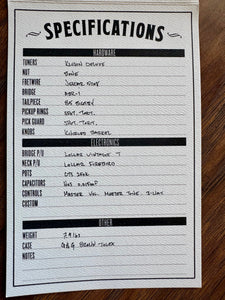 SPECIFICATIONS
HARDWARE
TUNERS KLUSON DELUXE
NUT BONE
FRETWIRE JESCAR
BRIDGE ABR-1
TAILPIECE B5 BIGSBY
PICKUP RINGS SHT. TORT.
PICK GUARD SHT. TORT.
KNOBS KNURLED BARREL
ELECTRONICS
BRIDGE P/U LOLLAR VINTAGE T
NECK P/U LOLLAR FIREBIRD
POTS CTS 500K
CAPACITORS
CONTROLS MASTER VOL. MASTER TONE, 3-WAY
CUSTOM
OTHER
WEIGHT 7.9 lbs
CASE G&G BROWN TOLEX
NOTES